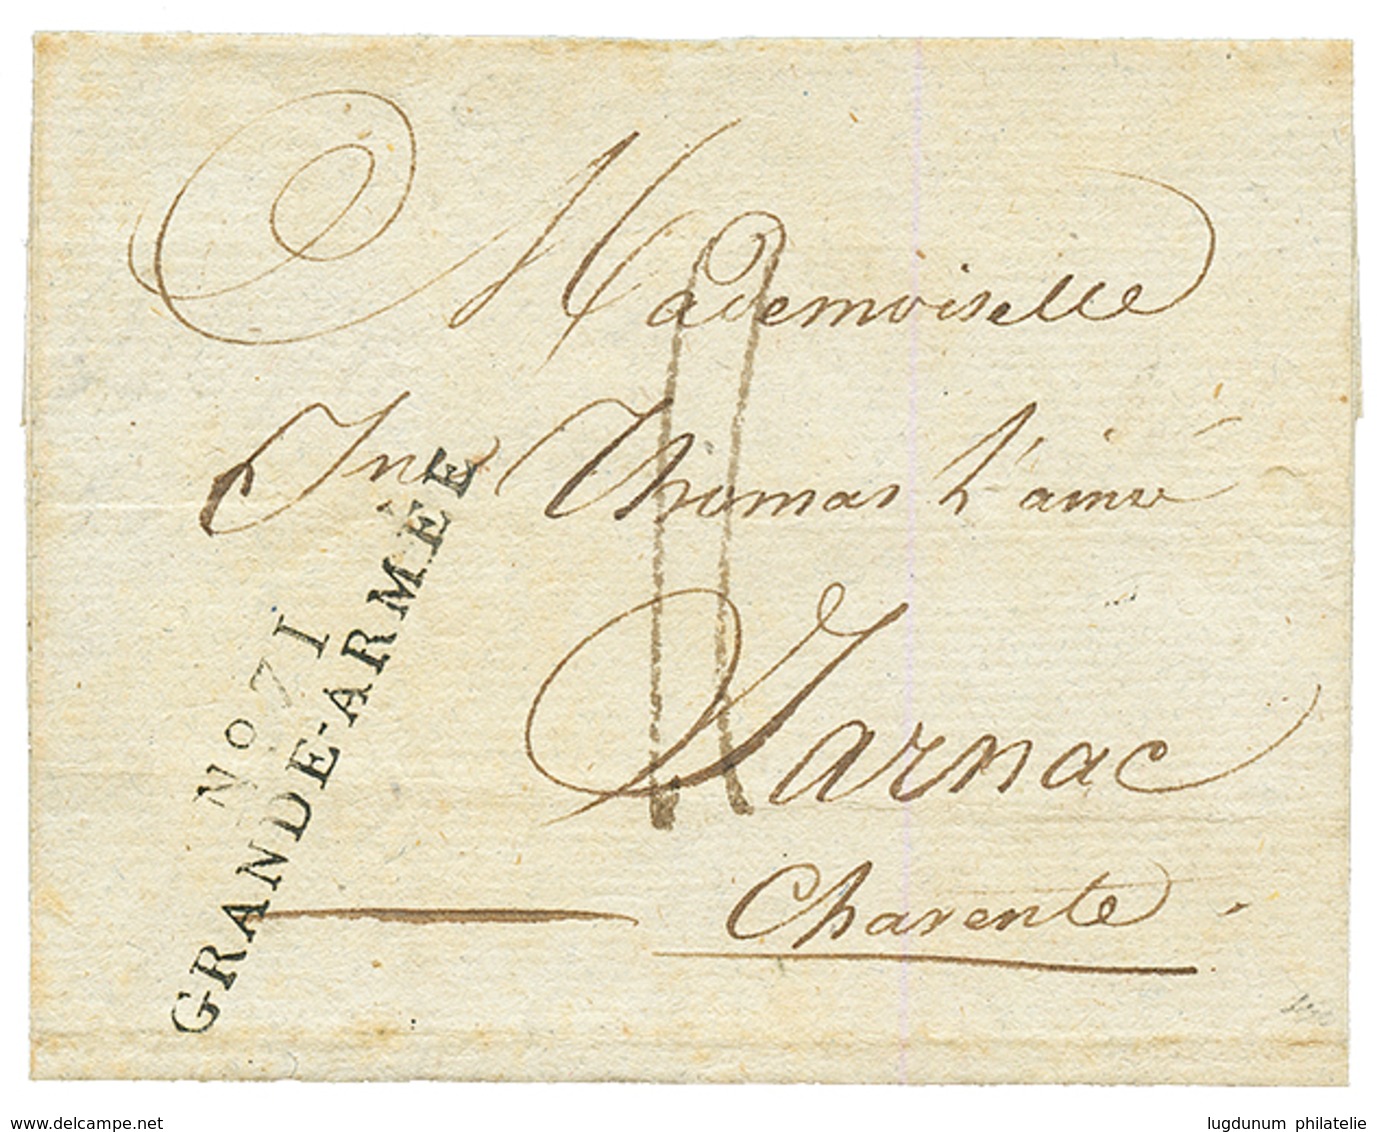 Mademoiselle
Thomas l'ainé
Jarnac
Charente
No 71
GRANDE-ARMÉE
www.delcampe.net
lugdunum philatelie